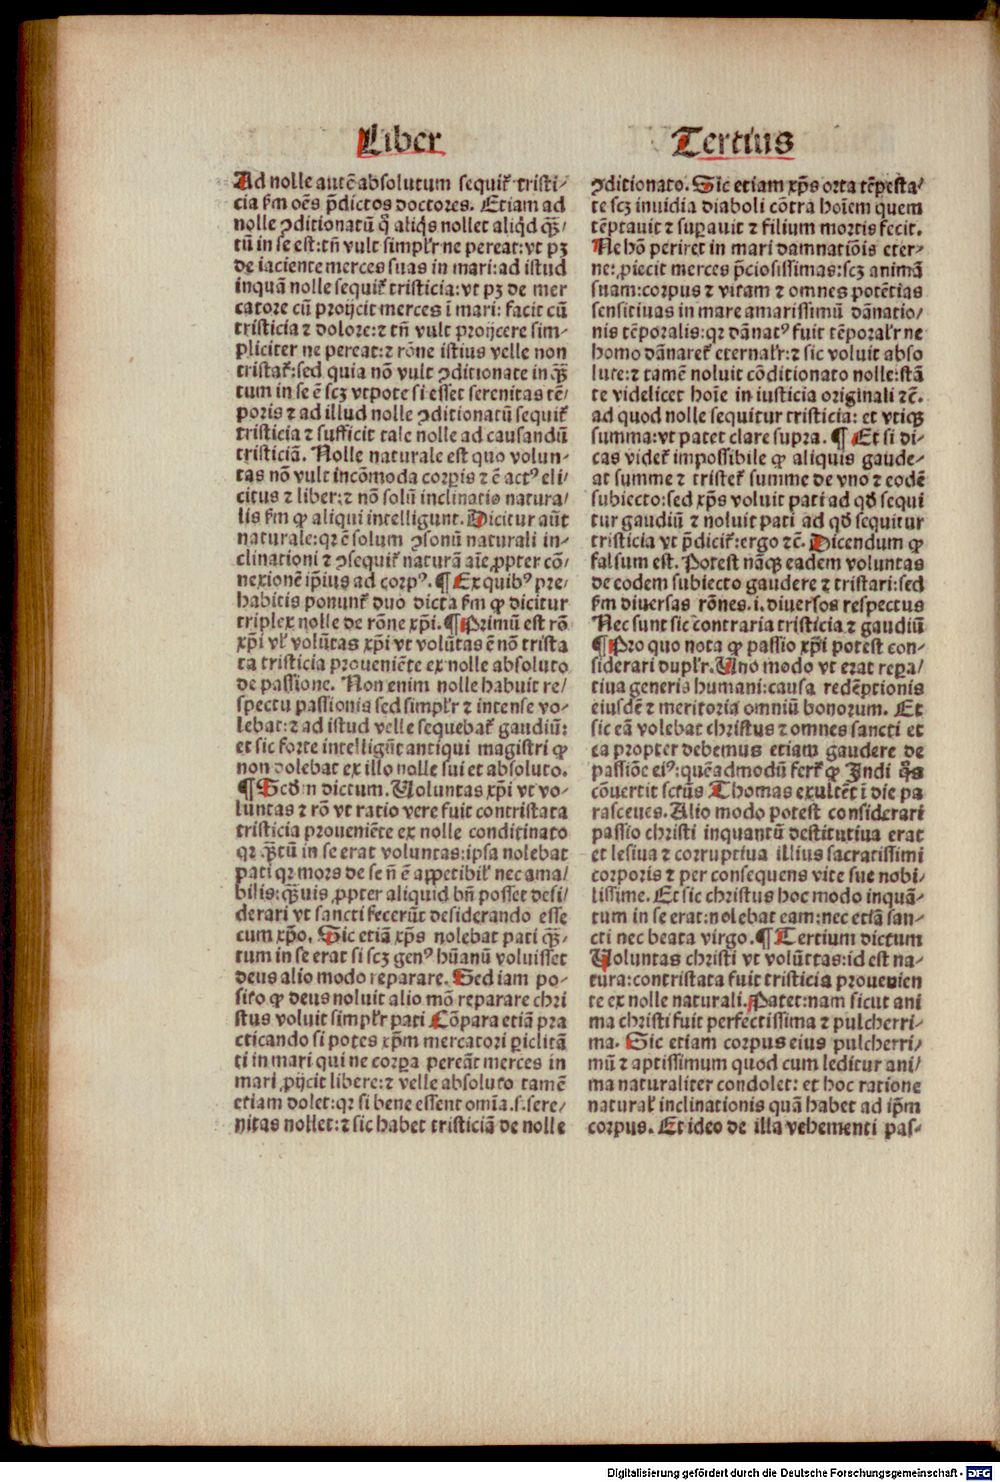 Liber Tertius
Ad nolle autē absolutum sequit᷑ tristi⸗
cia ẜm oēs p̄dictos doctores. Etiam ad
nolle ↄditionatū q̄ aliq̇s nollet aliq̇d qᷓ⸗
tū in se est: tn̄ vult simplr̄ ne pereat: vt pꝫ
de iaciente merces suas in mari: ad istud
inquā nolle sequit᷑ tristicia: vt pꝫ de mer
catore cū proijcit merces ī mari: facit cū
tristicia ⁊ dolore: ⁊ tn̄ vult proijcere sim⸗
pliciter ne pereat: ⁊ rōne istius velle non
tristat᷑: sed quia nō vult ↄditionate in qᷓ
tum in se ē scꝫ vtpote si esset serenitas tē⸗
poris ⁊ ad illud nolle ↄditionatū sequit᷑
tristicia ⁊ sufficit tale nolle ad causandū
tristiciā. Nolle naturale est quo volun⸗
tas nō vult incōmoda corꝑis ⁊ ē actꝰ eli⸗
citus ⁊ liber: ⁊ nō solū inclinatio natura⸗
lis ẜm ꝙ aliqui intelligunt. Dicitur aūt
naturale: qꝛ ē solum ↄsonū naturali in⸗
clinationi ⁊ ↄsequit᷑ naturā aīe ꝓpter cō⸗
nexionē ip̄ius ad corpꝰ. ¶ Ex quibꝰ pre⸗
habitis ponunt᷑ duo dicta ẜm ꝙ dicitur
triplex nolle de rōne xp̄i. ¶ Primū est rō
xp̄i vl᷑ volūtas xp̄i vt volūtas ē nō trista
ta tristicia proueniēte ex nolle absoluto
de passione. Non enim nolle habuit re⸗
spectu passionis sed simplr̄ ⁊ intense vo⸗
lebat: ⁊ ad istud velle sequebat᷑ gaudiū:
et sic forte intelligūt antiqui magistri ꝙ
non dolebat ex illo nolle sui et absoluto.
¶ Scd̄m dictum. Uoluntas xp̄i vt vo⸗
luntas ⁊ rō vt ratio vere fuit contristata
tristicia proueniēte ex nolle conditinato
qꝛ qᷓtū in se erat voluntas: ipsa nolebat
pati qꝛ mors de se n̄ ē appetibil᷑ nec ama⸗
bilis: qᷓuis ꝓpter aliquid bn̄ posset desi⸗
derari vt sancti fecerūt desiderando esse
cum xp̄o. Sic etiā xp̄s nolebat pati qᷓ⸗
tum in se erat si scꝫ genꝰ hūanū voluisset
deus alio modo reparare. Sed iam po⸗
sito ꝙ deus noluit alio mō reparare chri
stus voluit simplr̄ pati Cōpara etiā pra
cticando si potes xp̄m mercatori ꝑiclitā
ti in mari qui ne corꝑa pereāt merces in
mari ꝓijcit libere: ⁊ velle absoluto tamē
etiam dolet: qꝛ si bene essent om̄ia .s. sere⸗
nitas nollet: ⁊ sic habet tristiciā de nolle
ↄditionato. Sic etiam xp̄s orta tēpesta⸗
te scꝫ inuidia diaboli cōtra hoīem quem
tēptauit ⁊ suꝑauit ⁊ filium mortis fecit.
Ne hō periret in mari damnatiōis eter⸗
ne: ꝓiecit merces p̄ciosissimas: scꝫ animā
suam: corpus ⁊ vitam ⁊ omnes potētias
sensitiuas in mare amarissimū dānatio⸗
nis tēporalis: qꝛ dānatꝰ fuit tēporalr̄ ne
homo dānaret᷑ eternalr̄: ⁊ sic voluit abso
lute: ⁊ tamē noluit cōditionato nolle: stā
te videlicet hoīe in iusticia originali ⁊c̄.
ad quod nolle sequitur tristicia: et vtiqꝫ
summa: vt patet clare supra. ¶ Et si di⸗
cas videt᷑ impossibile ꝙ aliquis gaude⸗
at summe ⁊ tristet᷑ summe de vno ⁊ eodē
subiecto: sed xp̄s voluit pati ad qd̄ sequi
tur gaudiū ⁊ noluit pati ad qd̄ sequitur
tristicia vt p̄dicit᷑: ergo ⁊c̄. Dicendum ꝙ
falsum est. Potest nāqꝫ eadem voluntas
de eodem subiecto gaudere ⁊ tristari: sed
ẜm diuersas rōnes .i. diuersos respectus
Nec sunt sic contraria tristicia ⁊ gaudiū
¶ Pro quo nota ꝙ passio xp̄i potest con⸗
siderari duplr̄. Uno modo vt erat reꝑa⸗
tiua generis humani: causa redēptionis
eiusdē ⁊ meritoria omniū bonorum. Et
sic eā volebat christus ⁊ omnes sancti et
ea propter debemus etiam gaudere de
passiōe eiꝰ: quēadmodū fert᷑ ꝙ Indi q̄s
cōuertit sctūs Thomas exultēt ī die pa
rasceues. Alio modo potest considerari
passio christi inquantū destitutiua erat
et lesiua ⁊ corruptiua illius sacratissimi
corporis ⁊ per consequens vite sue nobi⸗
lissime. Et sic christus hoc modo inquā⸗
tum in se erat: nolebat eam: nec etiā san⸗
cti nec beata virgo. ¶ Tertium dictum
Uoluntas christi vt volūttas: id est na⸗
tura: contristata fuit tristicia prouenien
te ex nolle naturali. Patet: nam sicut ani
ma christi fuit perfectissima ⁊ pulcherri⸗
ma. Sic etiam corpus eius pulcherri⸗
mū ⁊ aptissimum quod cum leditur ani⸗
ma naturaliter condolet: et hoc ratione
natural᷑ inclinationis quā habet ad ip̄m
corpus. Et ideo de illa vehementi pas⸗
Digitalisierung gefördert durch die Deutsche Forschungsgemeinschaft - DFG